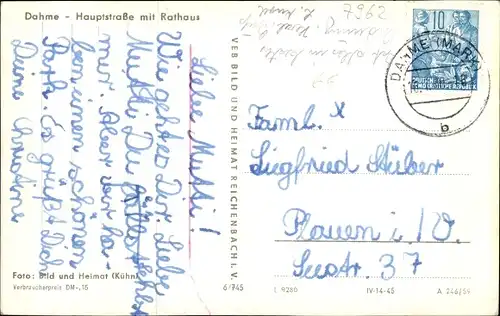 Dahme - Hauptstraße mit Rathaus
Liebe Mutti!
Wie geht es Dir. Liebe
Mutti Du fehlst sehr
mir. Aber wir ha-
ben einen schönen
Park. Es grüßt Dich
Deine Christine
Foto: Bild und Heimat (Kühn)
Verbraucherpreis DM -,15
VEB BILD UND HEIMAT REICHENBACH I. V.
6/745
7962
10
DEUTSCHE
DEMOKRATISCHE REPUBLIK
DAHME (MARK)
b
Faml. X
Siegfried Stüber
Plauen i./V.
Seestr. 37
L 9280
IV-14-45
A 246/59